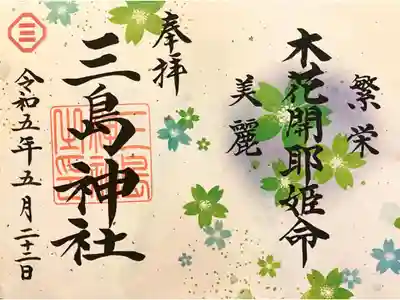 繁栄
木花開耶姫命
美麗
奉拝
三島神社
令和五年五月二十二日